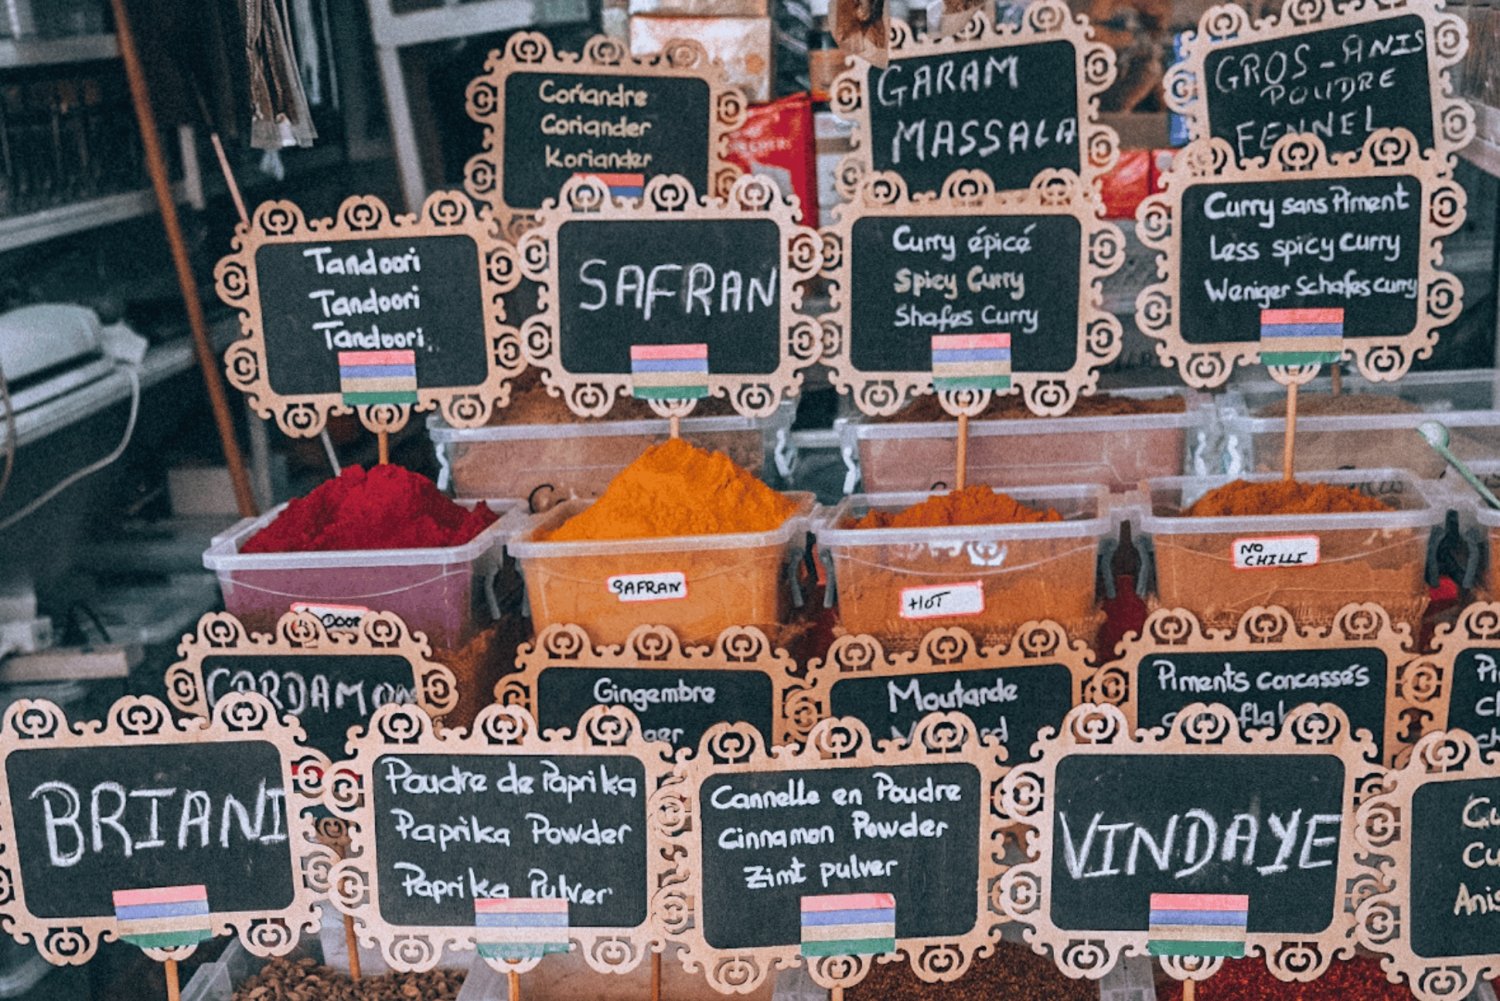 Coriandre
Coriander
Koriander
GARAM
MASSALA
GROS-ANIS
POUDRE
FENNEL
Tandoori
Tandoori
Tandoori
SAFRAN
Curry épicé
Spicy Curry
Shafes Curry
Curry sans Piment
Less spicy curry
Weniger Schafes curry
SAFRAN
HOT
NO
CHILLI
CARDAMON
Gingembre
Moutarde
Piments concassés
BRIANI
Poudre de Paprika
Paprika Powder
Paprika Pulver
Cannelle en Poudre
Cinnamon Powder
Zimt pulver
VINDAYE